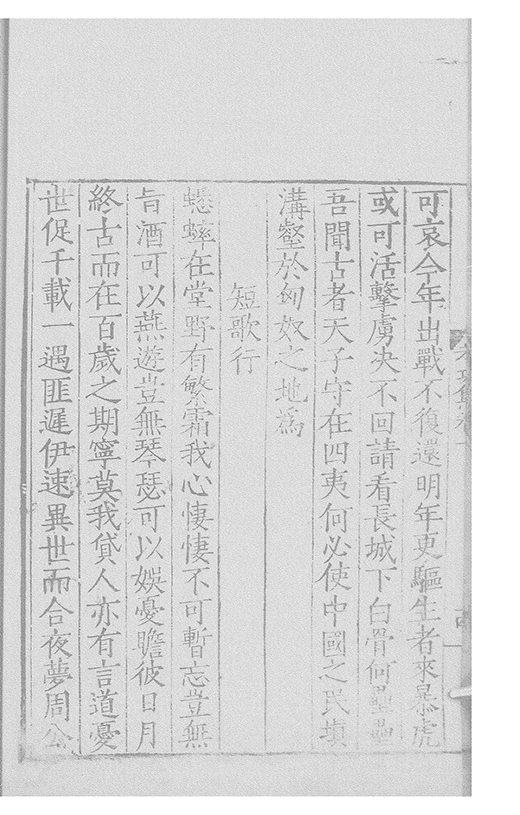 可哀今年出戰不復還明年更驅生者來暴虎
或可活擊虜決不回請看長城下白骨何壘壘
吾聞古者天子守在四夷何必使中國之民填
溝壑於匈奴之地為
短歌行
蟋蟀在堂野有繁霜我心悽悽不可暫忘豈無
旨酒可以燕遊豈無琴瑟可以娛憂瞻彼日月
終古而在百歲之期寧莫我貸人亦有言道憂
世促千載一遇匪遲伊速異世而合夜夢周公